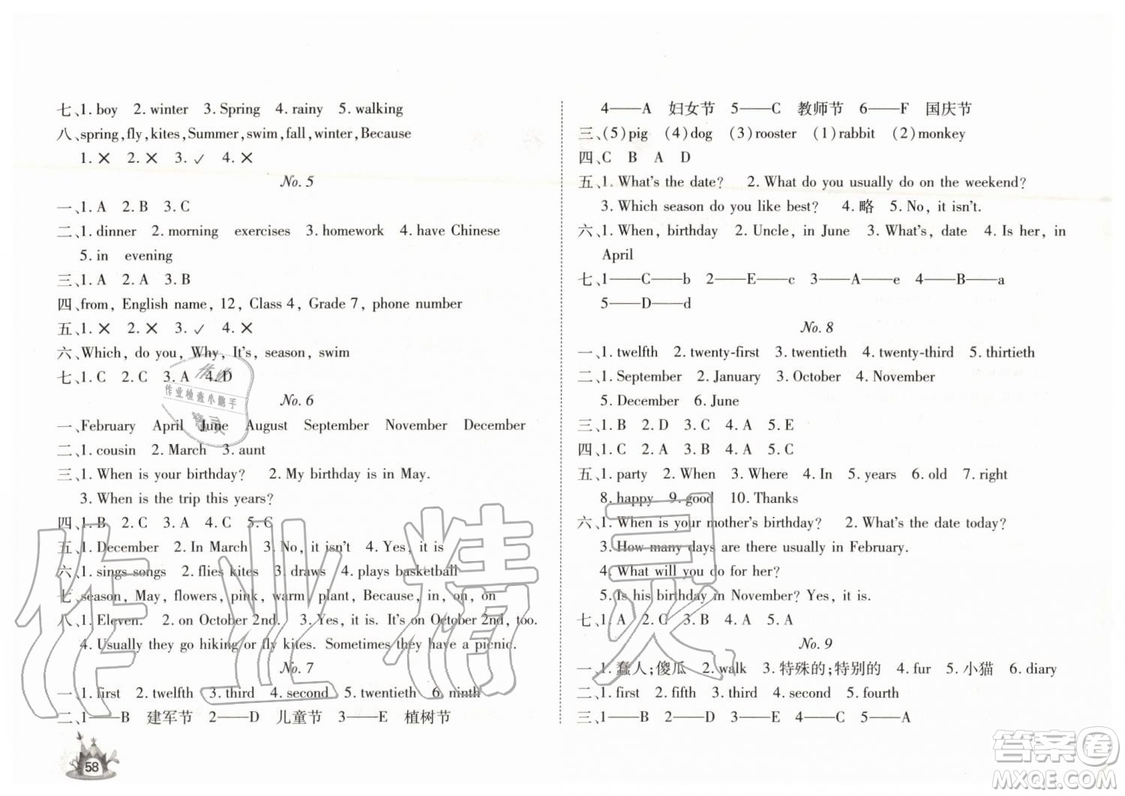 七、1. boy 2. winter 3. Spring 4. rainy 5. walking
八、spring, fly, kites, Summer, swim, fall, winter, Because
1. ✗ 2. ✗ 3. ✓ 4. ✗
No. 5
一、1. A 2. B 3. C
二、1. dinner 2. morning exercises 3. homework 4. have Chinese
5. in evening
三、1. A 2. A 3. B
四、from, English name, 12, Class 4, Grade 7, phone number
五、1. ✗ 2. ✗ 3. ✓ 4. ✗ 5. ✗
六、Which, do you, Why, It's, season, swim
七、1. C 2. C 3. A 4. D
No. 6
一、February April June August September November December
二、1. cousin 2. March 3. aunt
三、1. When is your birthday? 2. My birthday is in May.
3. When is the trip this years?
四、1. B 2. C 3. A 4. C 5. C
五、1. December 2. In March 3. No, it isn't 4. Yes, it is
六、1. sings songs 2. flies kites 3. draws 4. plays basketball
七、season, May, flowers, pink, warm, plant, Because, in, on, on
八、1. Eleven. 2. on October 2nd. 3. Yes, it is. It's on October 2nd, too.
4. Usually they go hiking or fly kites. Sometimes they have a picnic.
No. 7
一、1. first 2. twelfth 3. third 4. second 5. twentieth 6. ninth
二、1——B 建军节 2——D 儿童节 3——E 植树节
58
4——A 妇女节 5——C 教师节 6——F 国庆节
三、(5)pig (4)dog (3)rooster (1)rabbit (2)monkey
四、C B A D
五、1. What's the date? 2. What do you usually do on the weekend?
3. Which season do you like best? 4. 略 5. No, it isn't.
六、1. When, birthday 2. Uncle, in June 3. What's, date 4. Is her, in
April
七、1——C——b 2——E——c 3——A——e 4——B——a
5——D——d
No. 8
一、1. twelfth 2. twenty-first 3. twentieth 4. twenty-third 5. thirtieth
二、1. September 2. January 3. October 4. November
5. December 6. June
三、1. B 2. D 3. C 4. A 5. E
四、1. C 2. A 3. B 4. A 5. C
五、1. party 2. When 3. Where 4. In 5. years 6. old 7. right
8. happy 9. good 10. Thanks
六、1. When is your mother's birthday? 2. What's the date today?
3. How many days are there usually in February.
4. What will you do for her?
5. Is his birthday in November? Yes, it is.
七、1. A 2. C 3. B 4. A 5. C
No. 9
一、1. 蠢人;傻瓜 2. walk 3. 特殊的;特别的 4. fur 5. 小猫 6. diary
二、1. first 2. fifth 3. second 4. third 5. fourth
三、1——D 2——E 3——B 4——C 5——A
作业精灵
作业检查小帮手
答案圈
MXQE.COM